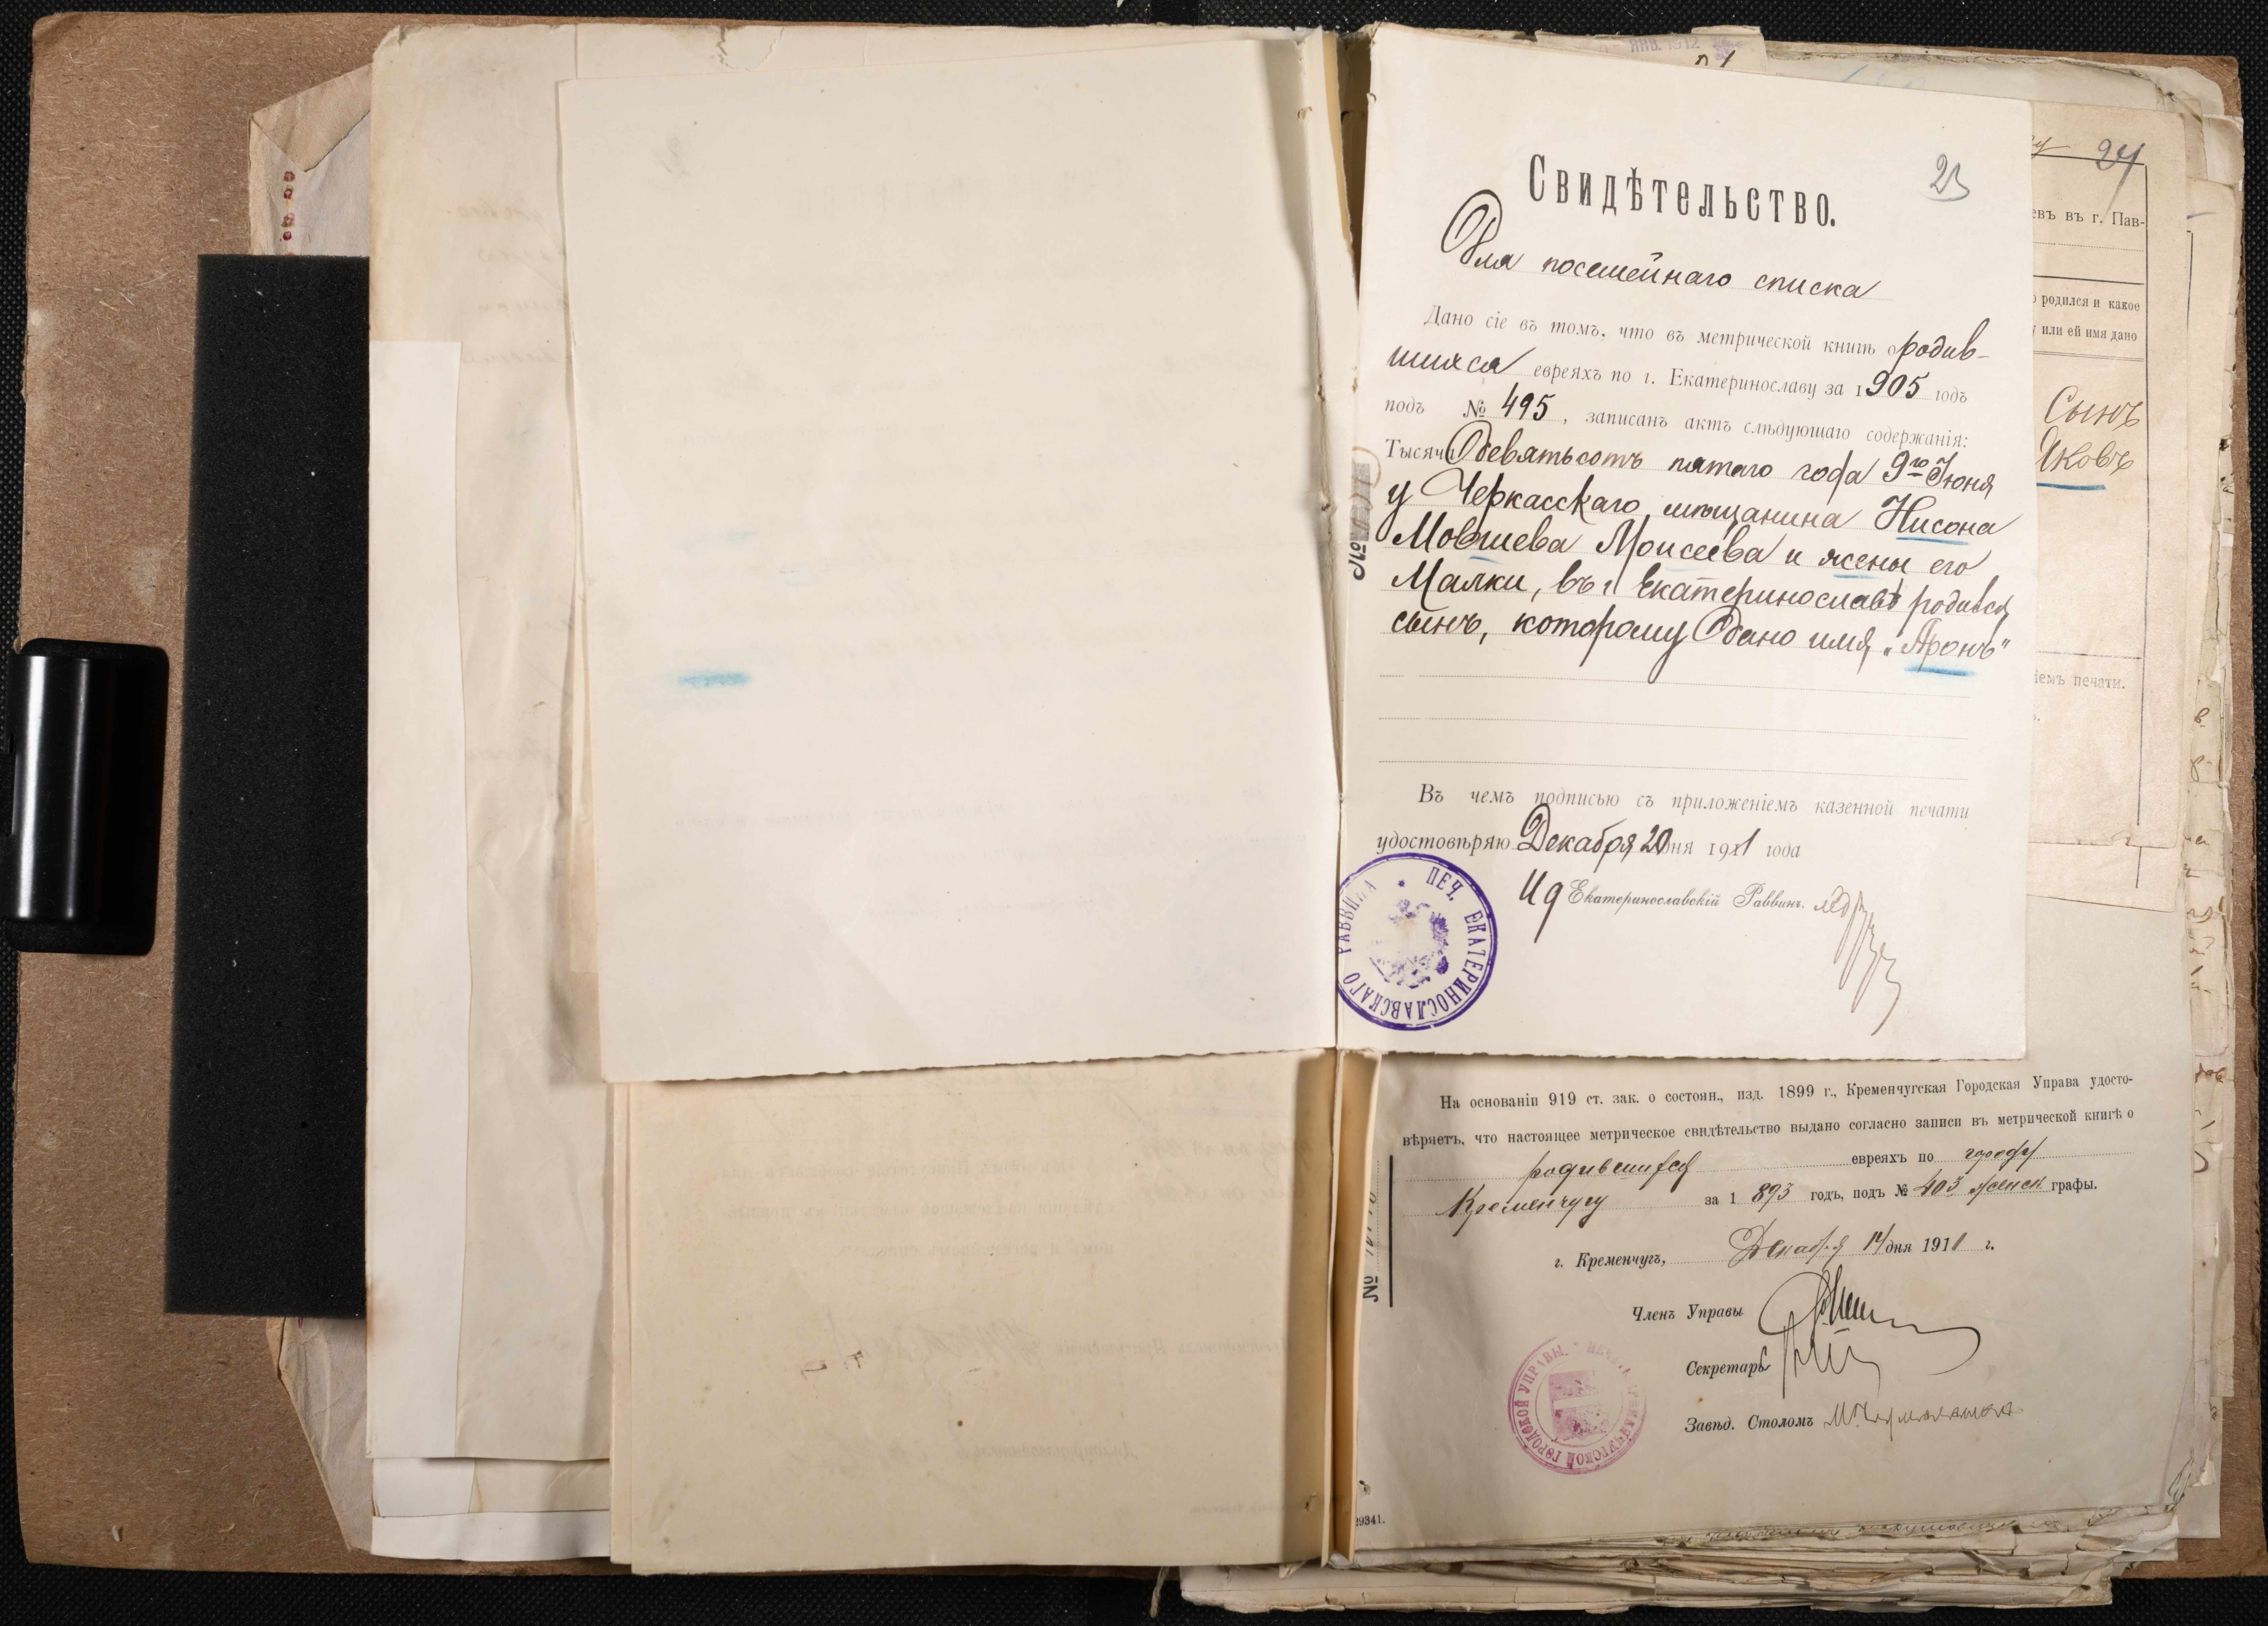 ЯНВ. 1912
23
Свидѣтельство.
Для посемейнаго списка
Дано сіе въ томъ, что въ метрической книгѣ о родив-
шихся евреяхъ по г. Екатеринославу за 1905 годъ
подъ № 495, записанъ актъ слѣдующаго содержанія:
Тысяча девятьсотъ пятаго года 9го Іюня
у Черкасскаго мѣщанина Нисона
Мовшева Моисеева и жены его
Малки, въ г. Екатеринославѣ родился
сынъ, которому дано имя „Аронъ"
Въ чемъ подписью съ приложеніемъ казенной печати
удостовѣряю Декабря 20 дня 1911 года
Ид Екатеринославскій Раввинъ
ПЕЧ. ЕКАТЕРИНОСЛАВСКАГО РАВВИНА
№
24
евъ въ г. Пав-
родился и какое
или ей имя дано
Сынъ
Яковъ
іемъ печати.
На основаніи 919 ст. зак. о состоян., изд. 1899 г., Кременчугская Городская Управа удосто-
вѣряетъ, что настоящее метрическое свидѣтельство выдано согласно записи въ метрической книгѣ о
родившихся евреяхъ по городу
Кременчугу за 1893 годъ, подъ № 403 женск графы.
г. Кременчугъ, Декабря 14 дня 1911 г.
Членъ Управы
Секретарь
Завѣд. Столомъ
КРЕМЕНЧУГСКОЙ ГОРОДСКОЙ УПРАВЫ
№
29341.